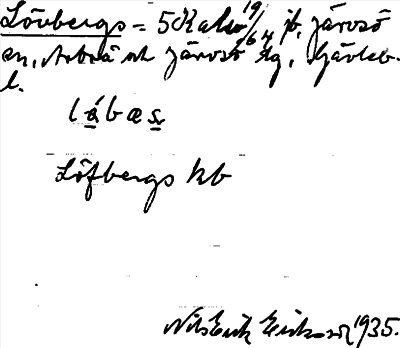 Lövbergs = 5 Kalv 19/64 jb, Järvsö
sn, Arbrå och Järvsö tg, Gävleb.
l.
lábæs
Löfbergs kb
Nils Erik Erikson 1935.